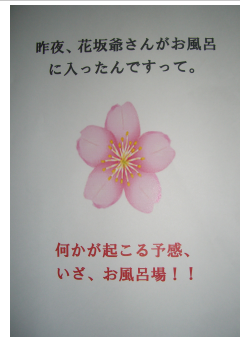 昨夜、花坂爺さんがお風呂
に入ったんですって。
何かが起こる予感、
いざ、お風呂場！！